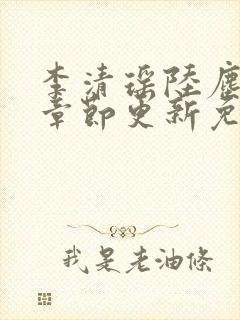 李清瑶陆尘
章节更新免
我是老油條